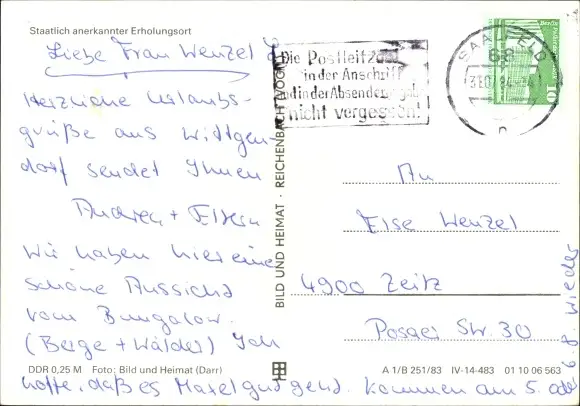 Staatlich anerkannter Erholungsort
Liebe Frau Wenzel
Herzliche Urlaubs-
grüße aus Wittgen-
dorf sendet Ihnen
Andrea + Eltern
Wir haben hier eine
schöne Aussicht
vom Bungalow.
(Berge + Wälder) Ich
hoffe, daß es Hasel gut geht. Kommen am 5. od.
6. 8. wieder
DDR 0,25 M Foto: Bild und Heimat (Darr)
BILD UND HEIMAT · REICHENBACH (VOGTL
Die Postleitzahl
in der Anschrift
und in der Absenderangabe
nicht vergessen!
SAALFELD
68
31.07.84
n
10
An
Else Wenzel
4900 Zeitz
Posaer Str. 30
A 1/B 251/83 IV-14-483 01 10 06 563